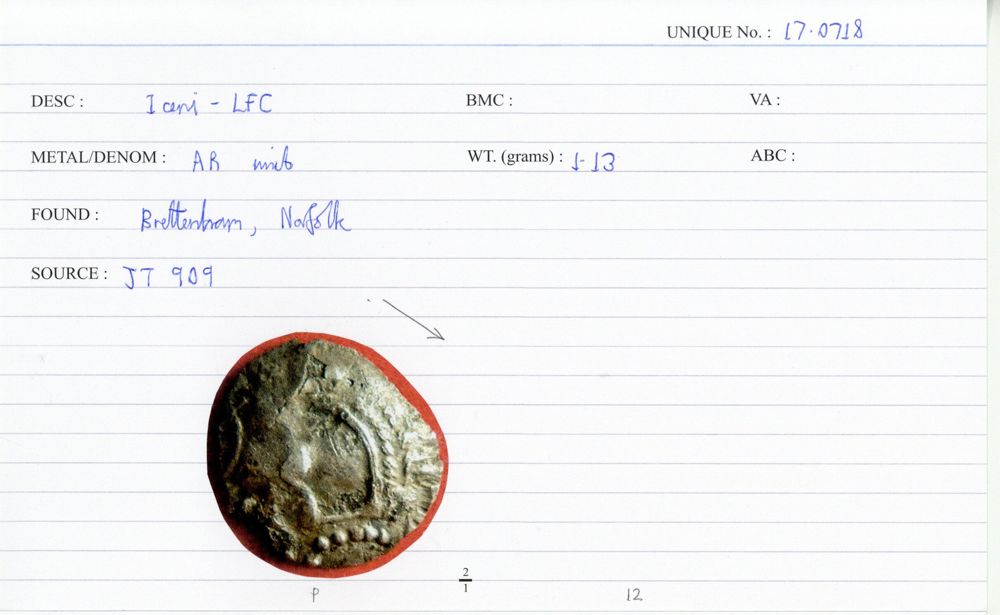 UNIQUE No. : 17.0718
DESC : Iceni - LFC BMC : VA :
METAL/DENOM : AR unit WT. (grams) : 1.13 ABC :
FOUND : Brettenham, Norfolk
SOURCE : JT 909
2
1
P 12